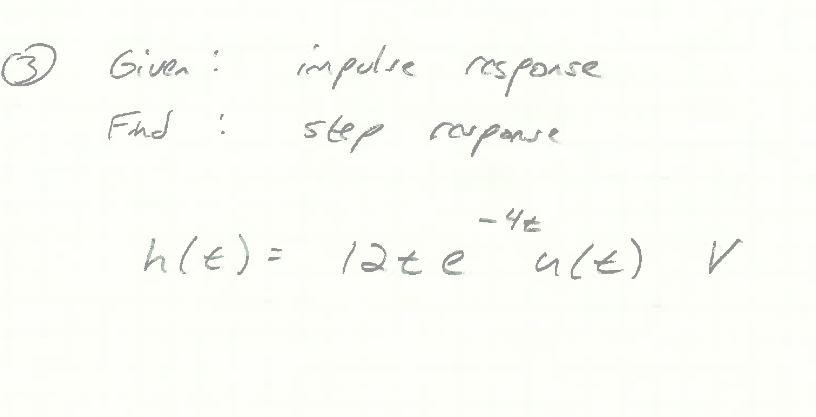 ③ Given : impulse response
Find : step response
h(t) = 12te^{-4t} u(t) V